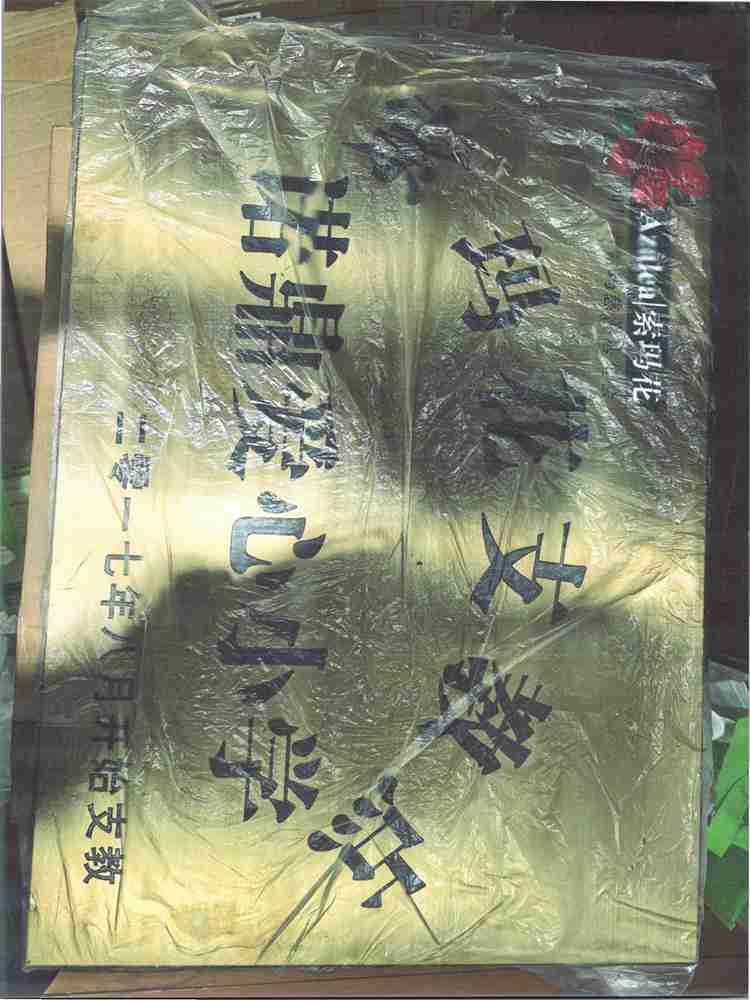 Azalea|索玛花
索玛花支教点
诺鼎爱心小学
二零一七年八月开始支教